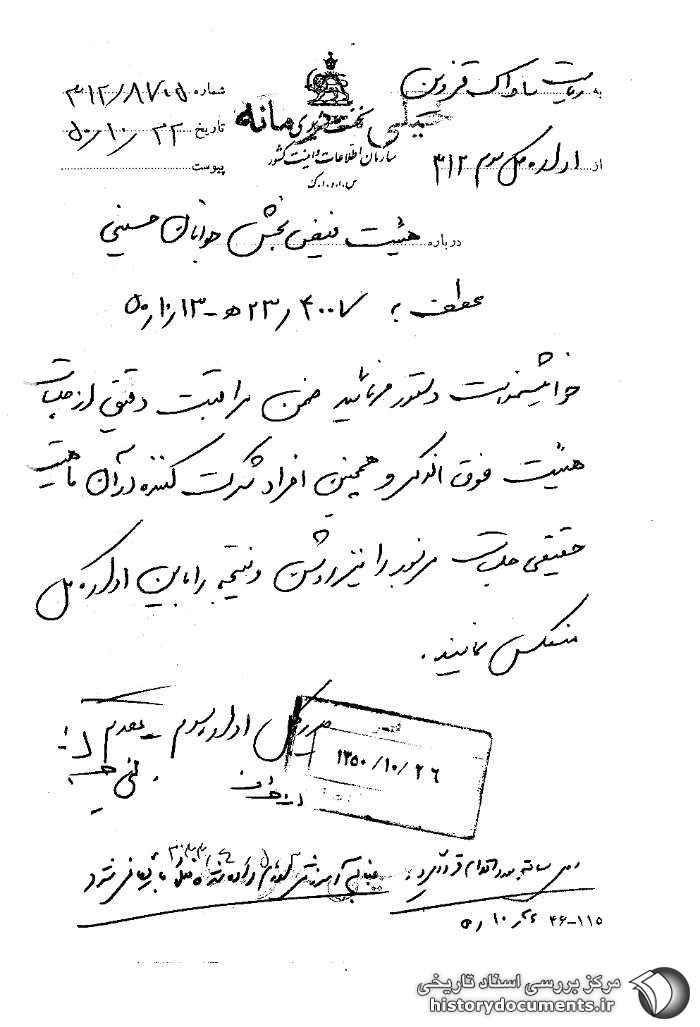 به ریاست ساواک قزوین
از اداره کل سوم ۳۱۲
خیلی محرمانه
سازمان اطلاعات و امنیت کشور
س.ا.و.ا.ک
شماره ۳۱۲/۸۷۰۵
تاریخ ۵۰/۱۰/۲۲
پیوست
درباره هیئت فیض بخش جوانان حسینی
عطف به ۴۰۰۷/۲۳ه-۵۰/۱۰/۱۳
خواهشمند است دستور فرمائید ضمن مراقبت دقیق از جلسات
هیئت فوق الذکر و همچنین افراد شرکت کننده در آن ماهیت
حقیقی جلسات مزبور را نیز روشن و نتیجه را باین اداره کل
منعکس نمایند.
مدیرکل اداره سوم - مقدم
۱۳۵۰/۱۰/۲۶
۴۶-۱۱۵
مرکز بررسی اسناد تاریخی
historydocuments.ir